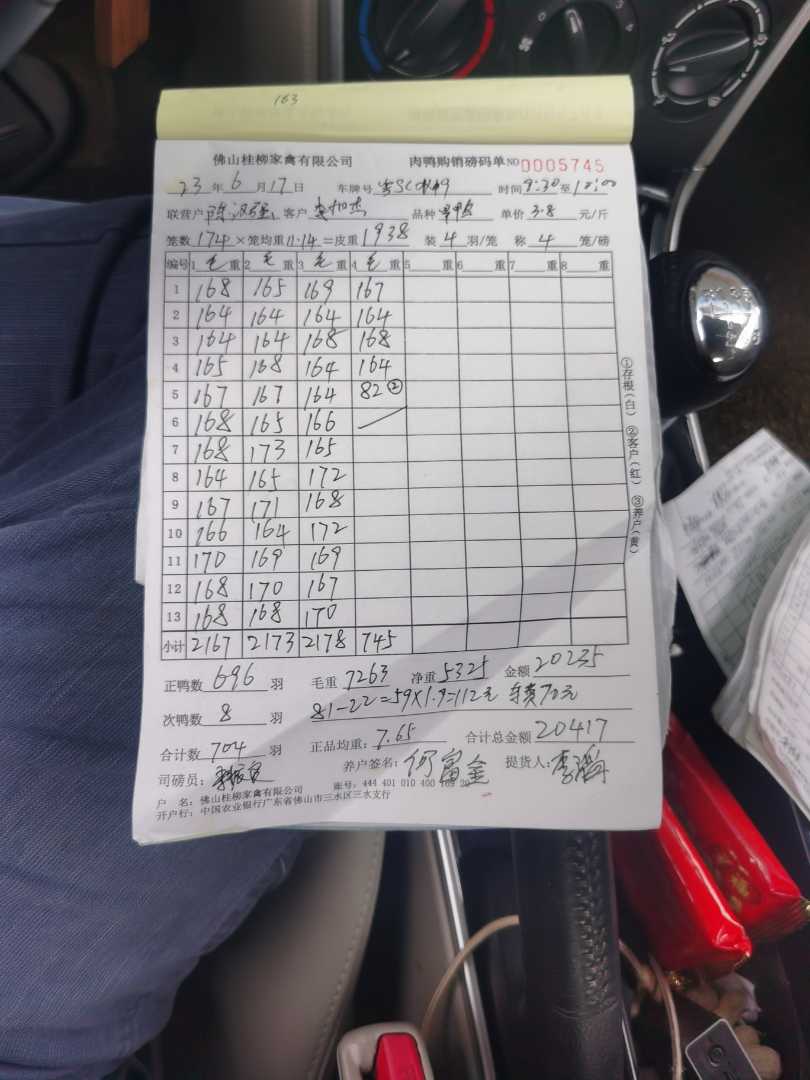 163
佛山桂柳家禽有限公司 肉鸭购销磅码单 NO 0005745
23 年 6 月 17 日 车牌号 时间 9:30 至 10:00
联营户 陈汉强 客户 李加杰 品种 单价 3.8 元/斤
笼数 174 × 笼均重 11.14 = 皮重 1938 装 4 羽/笼 称 4 笼/磅
编号 1 毛 重 2 毛 重 3 毛 重 4 毛 重 5 重 6 重 7 重 8 重
1 168 165 169 167
2 164 164 164 164
3 164 164 168 168
4 165 168 164 164
5 167 167 164 82 ②
6 168 165 166
7 168 173 165
8 164 165 172
9 167 171 168
10 166 164 172
11 170 169 169
12 168 170 167
13 168 168 170
小计 2167 2173 2178 745
正鸭数 696 羽 毛重 7263 净重 5325 金额 20235
次鸭数 8 羽 81-22=59×1.9=112元 70元
合计数 704 羽 正品均重: 7.65 合计总金额 20417
司磅员: 养户签名: 何富金 提货人:
户 名: 佛山桂柳家禽有限公司 账号: 444 401 010 400
开户行: 中国农业银行广东省佛山市三水区三水支行
①存根(白) ②客户(红) ③养户(黄)